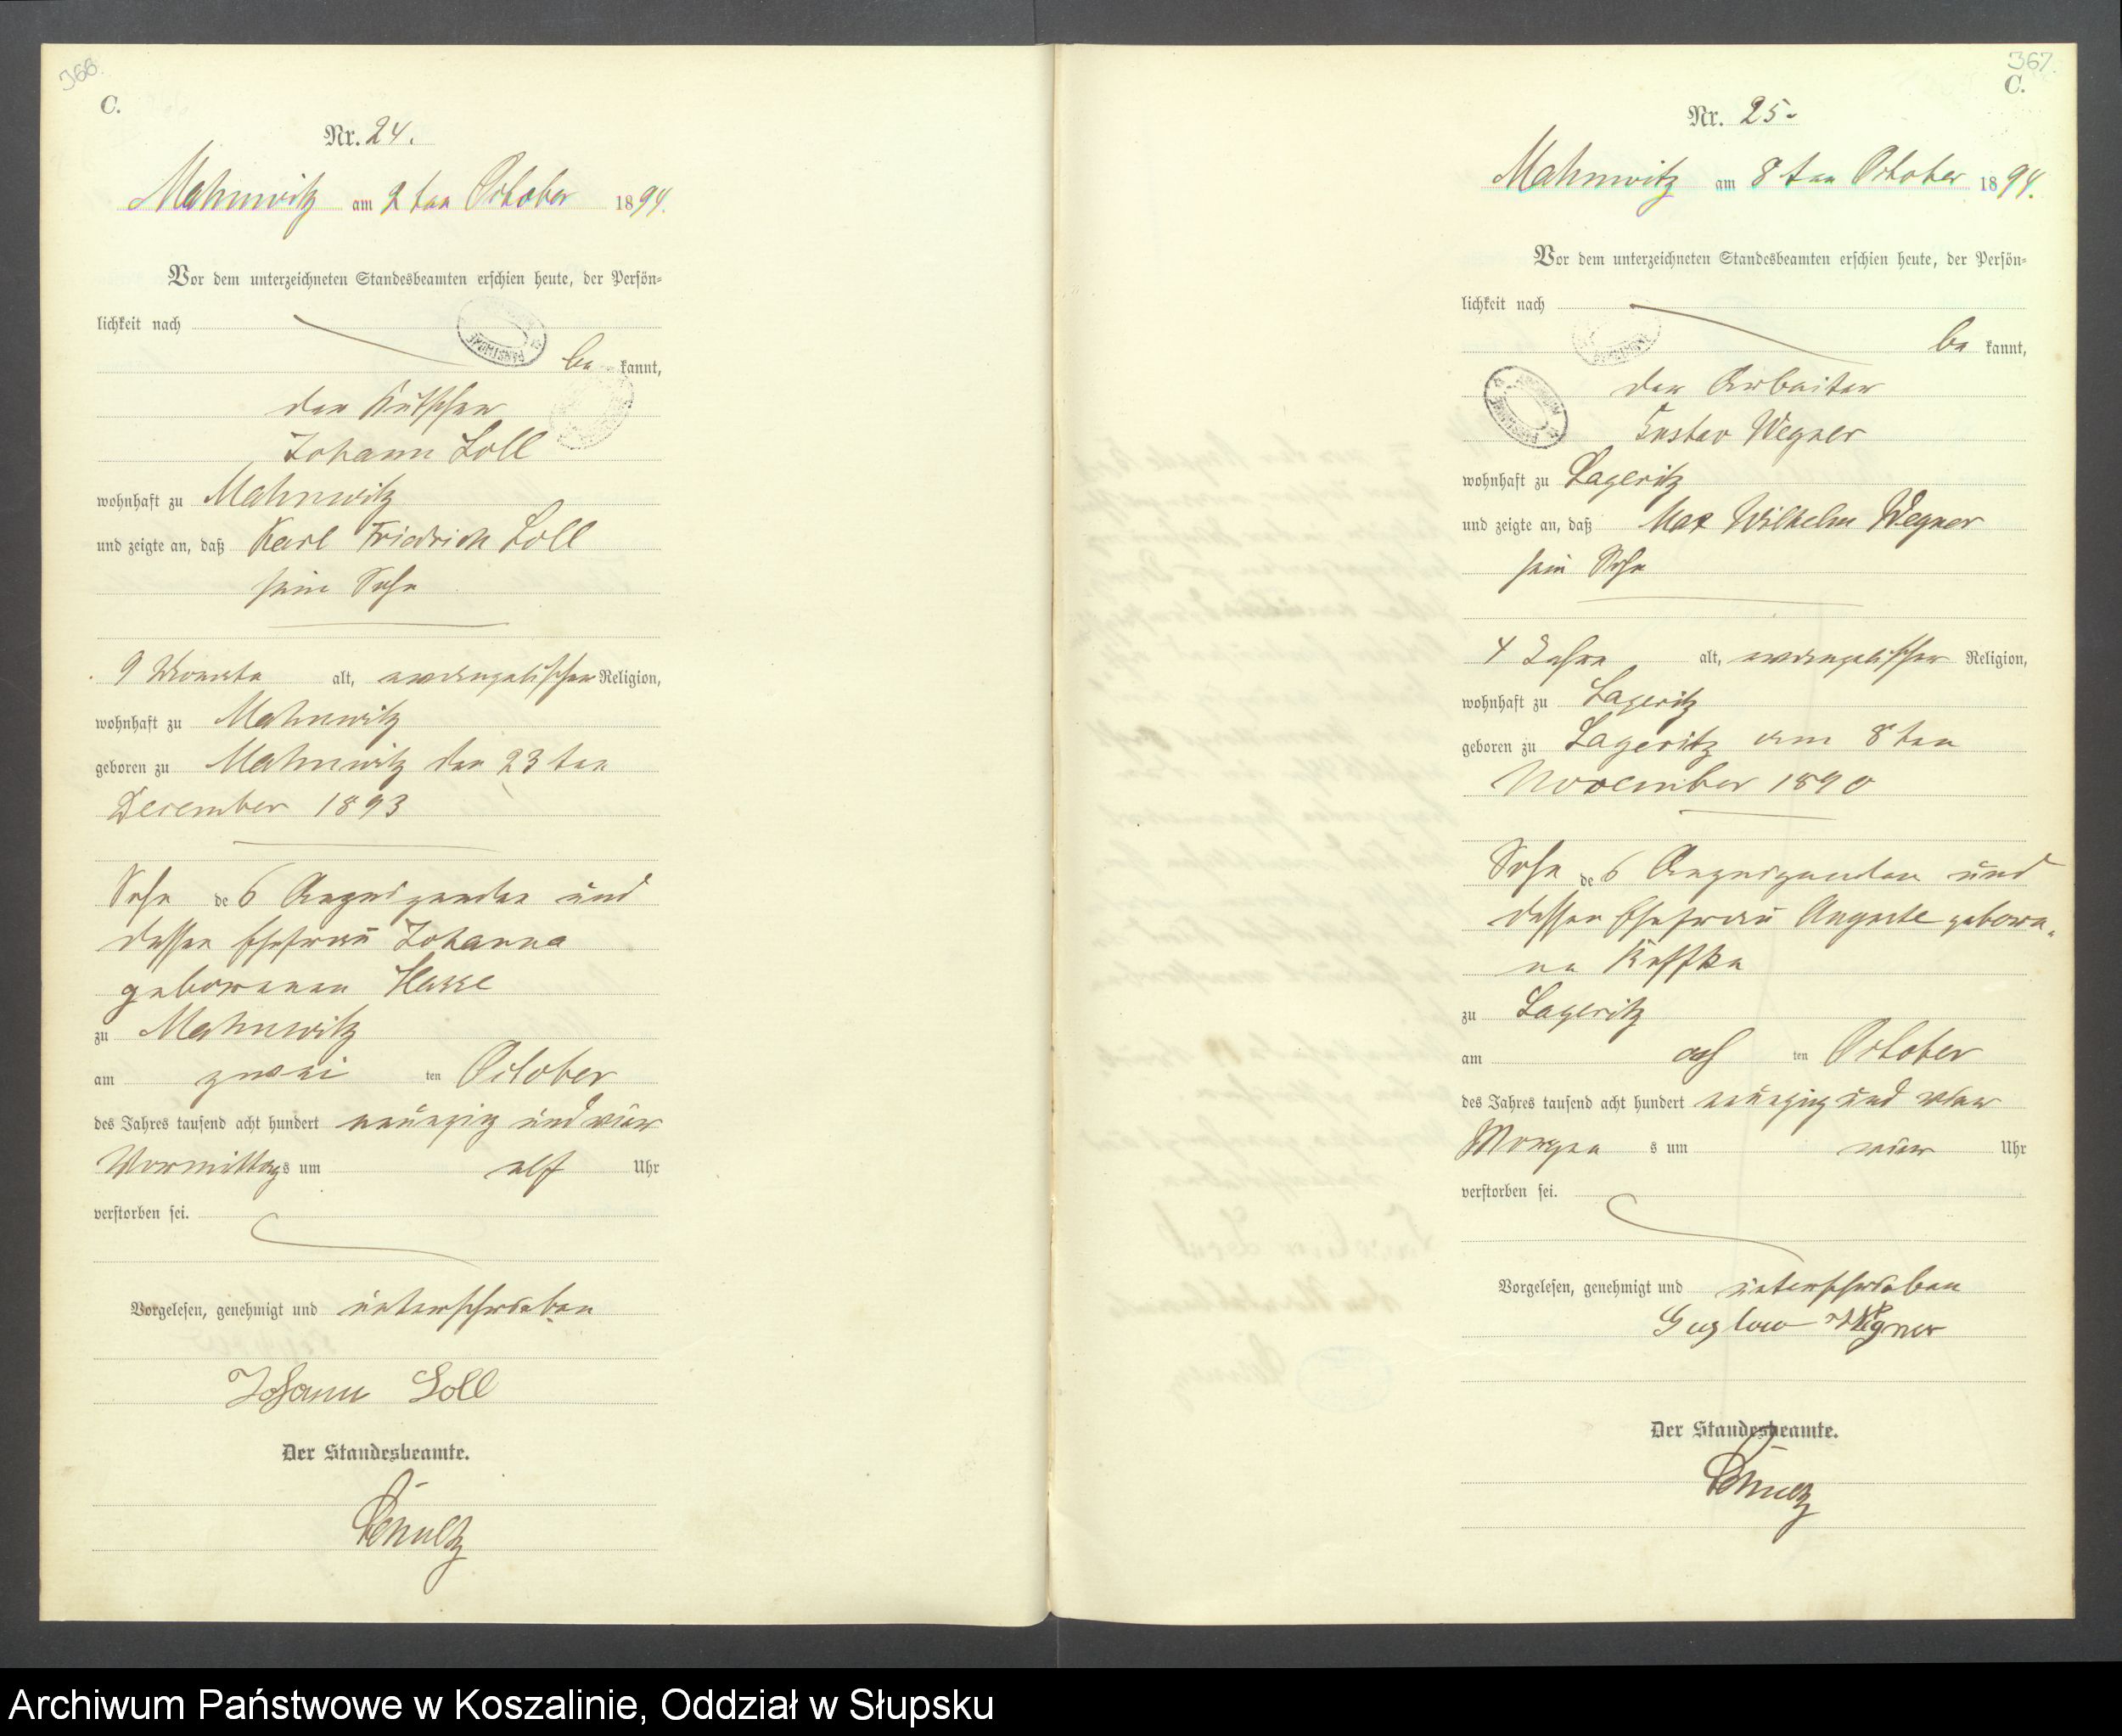 366.
C.
Nr. 24.
Mahnwitz am 2ten October 1894.
Vor dem unterzeichneten Standesbeamten erschien heute, der Persön-
lichkeit nach
be kannt,
der Kutscher
Johann Loll
wohnhaft zu Mahnwitz
und zeigte an, daß Karl Friedrich Loll
sein Sohn
9 Monate alt, evangelischer Religion,
wohnhaft zu Mahnwitz
geboren zu Mahnwitz den 23ten
December 1893
Sohn des Anzeigenden und
dessen Ehefrau Johanna
geborenen
zu Mahnwitz
am zwei ten October
des Jahres tausend acht hundert neunzig und vier
Vormittags um elf Uhr
verstorben sei.
Vorgelesen, genehmigt und unterschrieben
Johann Loll
Der Standesbeamte.
Schultz
367.
C.
Nr. 25.
Mahnwitz am 8ten October 1894.
Vor dem unterzeichneten Standesbeamten erschien heute, der Persön-
lichkeit nach
be kannt,
der Arbeiter
Gustav Wegner
wohnhaft zu Lageritz
und zeigte an, daß Max Wilhelm Wegner
sein Sohn
4 Jahre alt, evangelischer Religion,
wohnhaft zu Lageritz
geboren zu Lageritz am 8ten
November 1890
Sohn des Anzeigenden und
dessen Ehefrau Auguste gebore-
ne
zu Lageritz
am ach ten October
des Jahres tausend acht hundert neunzig und vier
Morgen s um vier Uhr
verstorben sei.
Vorgelesen, genehmigt und unterschrieben
Gustav Wegner
Der Standesbeamte.
Schultz
Archiwum Państwowe w Koszalinie, Oddział w Słupsku